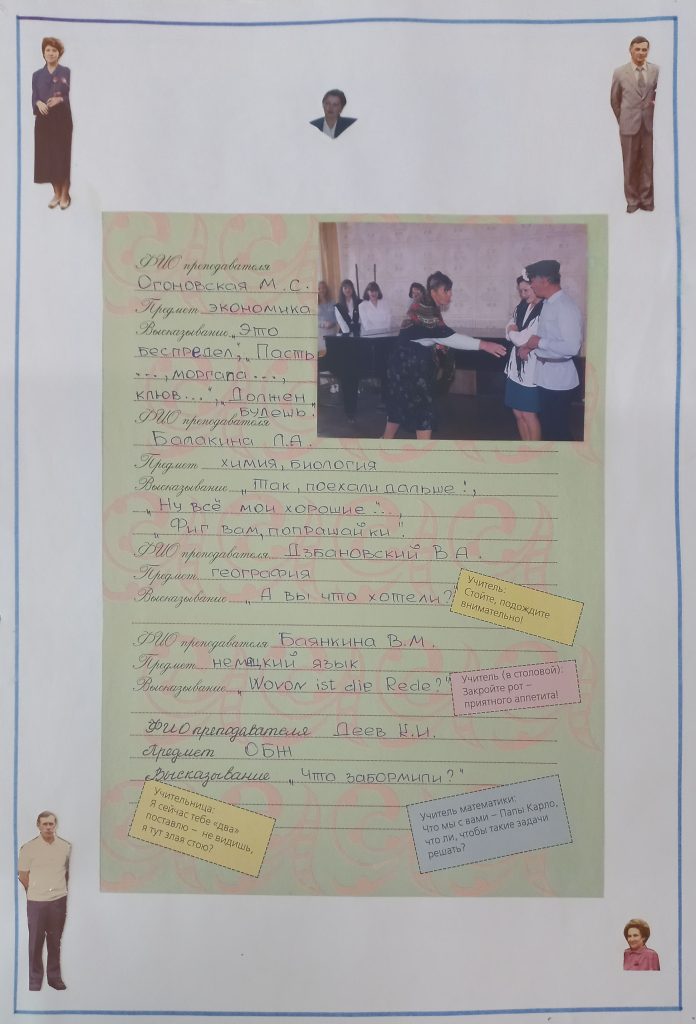 ФИО преподавателя
Огоновская М.С.
Предмет экономика
Высказывание „Это
беспредел", „Пасть
..., моргала...,
клюв...", „Должен
будешь"
ФИО преподавателя
Балакина Л.А.
Предмет химия, биология
Высказывание „Так, поехали дальше!",
„Ну всё мои хорошие"...
„Фиг вам, попрашайки".
ФИО преподавателя Дзбановский В.А.
Предмет география
Высказывание „А вы что хотели?"
Учитель:
Стойте, подождите
внимательно!
ФИО преподавателя Баянкина В.М.
Предмет немецкий язык
Высказывание „Wovon ist die Rede?"
Учитель (в столовой):
Закройте рот –
приятного аппетита!
ФИО преподавателя Деев Н.И.
Предмет ОБЖ
Высказывание „Что забормили?"
Учительница:
Я сейчас тебе «два»
поставлю – не видишь,
я тут злая стою?
Учитель математики:
Что мы с вами – Папы Карло,
что ли, чтобы такие задачи
решать?